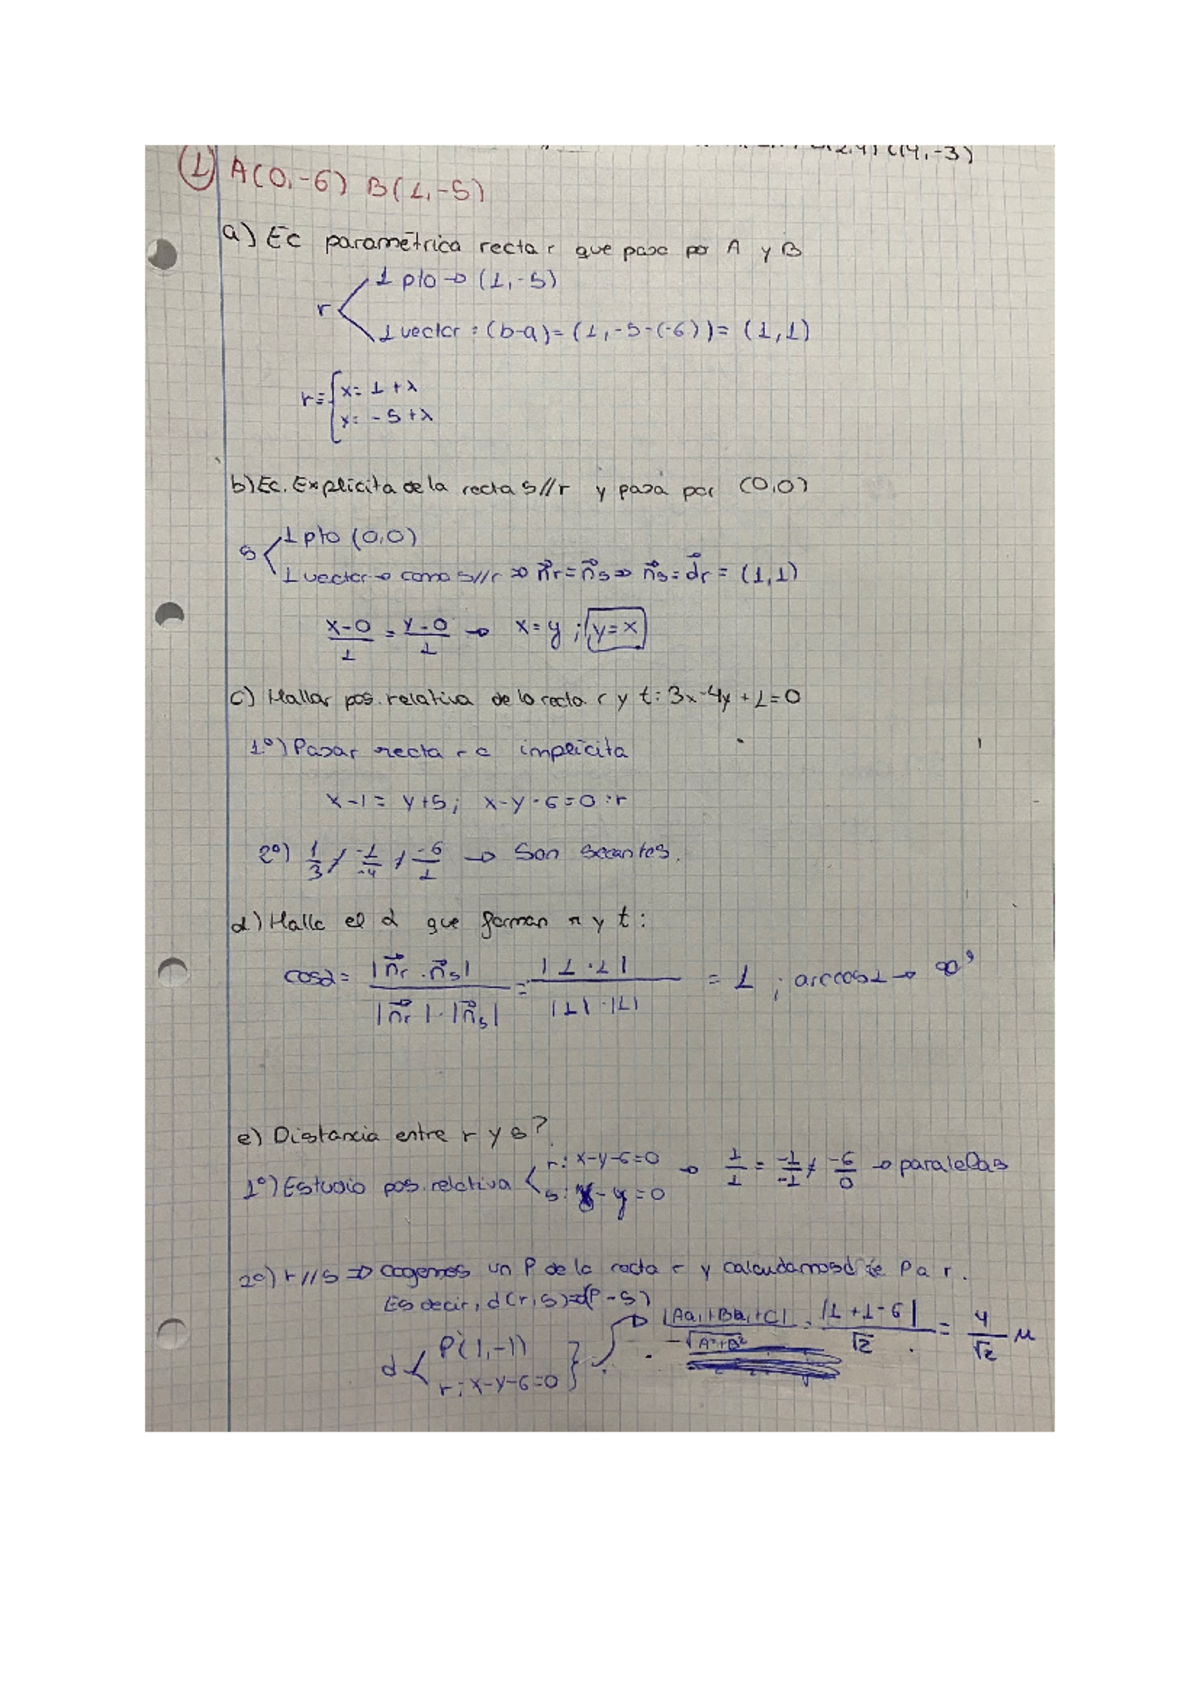 (2,4) C(4,-3)
1 A(0,-6) B(1,-5)
a) Ec paramétrica recta r que pasa por A y B
r
1 pto → (1,-5)
1 vector : (b-a) = (1,-5-(-6)) = (1,1)
r ≡ { x = 1 + λ
y = -5 + λ
b) Ec. Explicita de la recta s//r y pasa por (0,0)
s
1 pto (0,0)
1 vector → como s//r ⇒ n⃗r = n⃗s ⇒ n⃗s = d⃗r = (1,1)
x-0/1 = y-0/1 → x=y ; y=x
c) Hallar pos. relativa de la recta r y t: 3x-4y+1=0
1º) Pasar recta r a implícita
x-1 = y+5; x-y-6=0 :r
2º) 1/3 ≠ -1/-4 ≠ -6/1 → Son secantes.
d) Halla el α que forman r y t:
cosα = |n⃗r · n⃗s| / |n⃗r| · |n⃗s| = |1·1| / |1|·|1| = 1 ; arccos1 →
e) Distancia entre r y s?
1º) Estudio pos. relativa
r: x-y-6=0
s: x-y=0
→ 1/1 = -1/-1 ≠ -6/0 → paralelas
2º) r//s ⇒ cogemos un P de la recta r y calculamos d de P a r.
Es decir, d(r,s)=d(P-s)
d
P(1,-1)
r: x-y-6=0
|Aa₁+Ba₂+C| / √A²+B² = |1+1-6| / √2 = 4/√2 u